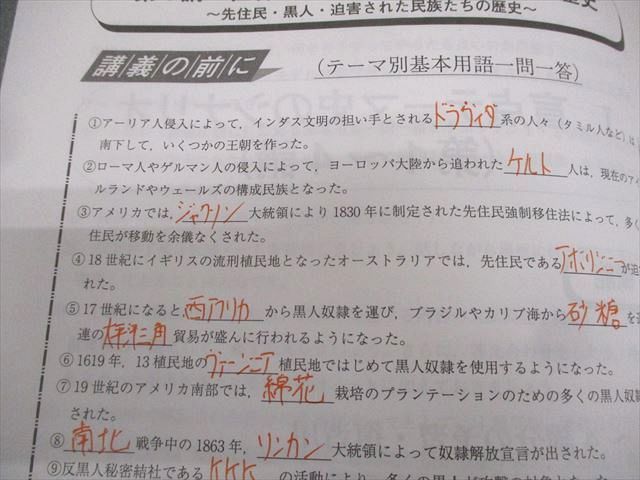 ～先住民・黒人・迫害された民族たちの歴史～
講義の前に
(テーマ別基本用語一問一答)
①アーリア人侵入によって，インダス文明の担い手とされるドラヴィダ系の人々（タミル人など）は
南下して，いくつかの王朝を作った。
②ローマ人やゲルマン人の侵入によって，ヨーロッパ大陸から追われたケルト人は，現在のアイ
ルランドやウェールズの構成民族となった。
③アメリカでは，ジャクソン大統領により1830年に制定された先住民強制移住法によって，多く
住民が移動を余儀なくされた。
④18世紀にイギリスの流刑植民地となったオーストラリアでは，先住民であるアボリジニーが迫
れた。
⑤17世紀になると，西アフリカから黒人奴隷を運び，ブラジルやカリブ海から砂糖を
連の大西洋三角貿易が盛んに行われるようになった。
⑥1619年，13植民地のヴァージニア植民地ではじめて黒人奴隷を使用するようになった。
⑦19世紀のアメリカ南部では，綿花栽培のプランテーションのための多くの黒人奴
された。
⑧南北戦争中の1863年，リンカン大統領によって奴隷解放宣言が出された。
⑨反黒人秘密結社であるKKKの活動により，多くの黒人が攻撃の対象となった